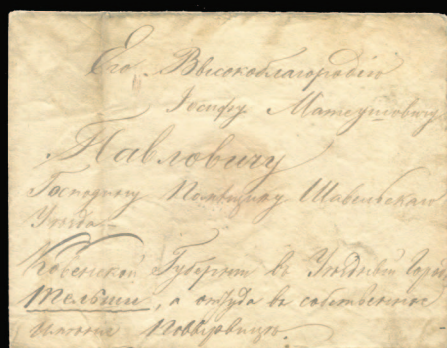 Его Высокоблагородію
Іосифу Матеушовичу
Павловичу
Господину Помѣщику Шавельскаго
Уѣзда
Ковенской Губерніи въ Уѣздный Горо
Тельши, а оттуда въ собственное
имѣніе